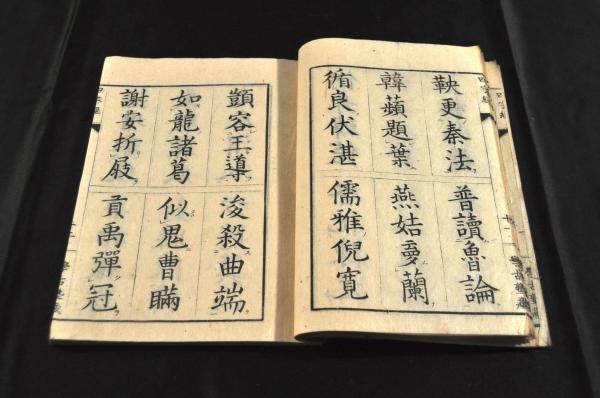 鞅更秦法
普讀魯論
韓蘋題葉
燕姞夢蘭
循良伏湛
儒雅倪寬
顗容王導
浚殺曲端
如龍諸葛
似鬼曹瞞
謝安折屐
貢禹彈冠